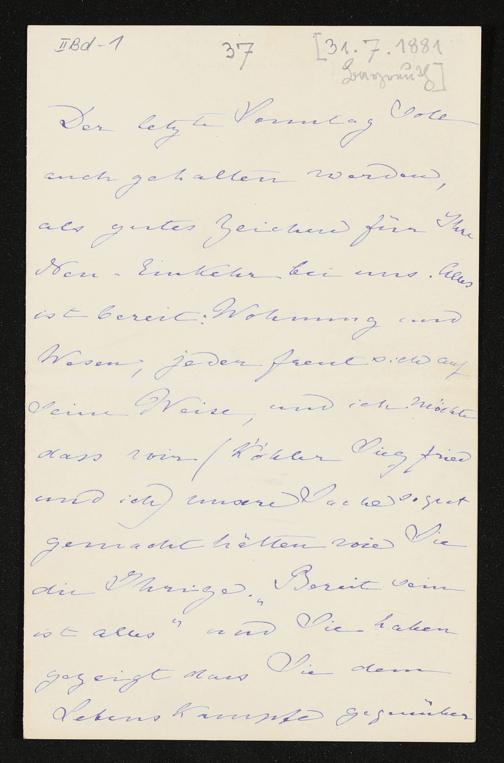 II Bd-1
37
[31.7.1881
Der letzte Sonntag soll
auch gehalten werden,
als gutes Zeichen für Ihre
Neu-Einkehr bei uns. Alles
ist bereit: Wohnung und
Wesen, jeder freut sich auf
seine Weise, und ich möchte
dass wir (Köhler Siegfried
und ich) unsere Sache so gut
gemacht hätten wie Sie
die Ihrige. „Bereit sein
ist alles" und Sie haben
gezeigt dass Sie dem
Lebens Kampfe gegenüber